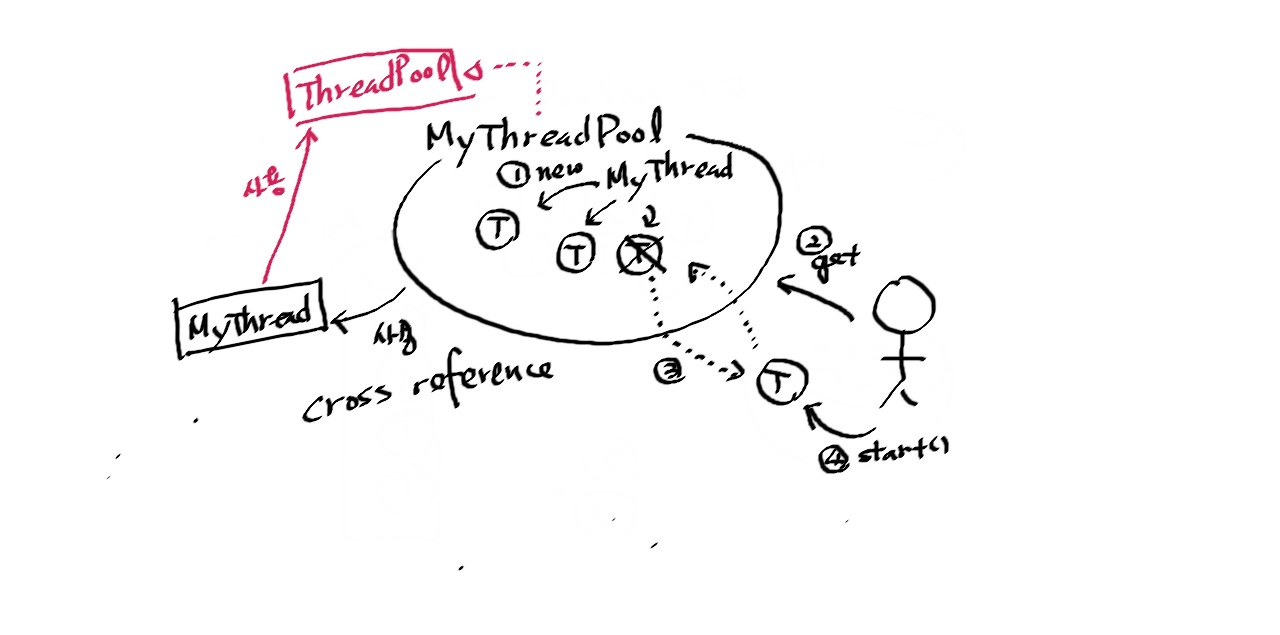 ThreadPool
MyThreadPool
① new MyThread
T
T
T
사용
② get
MyThread
사용
cross reference
③
T
④ start()